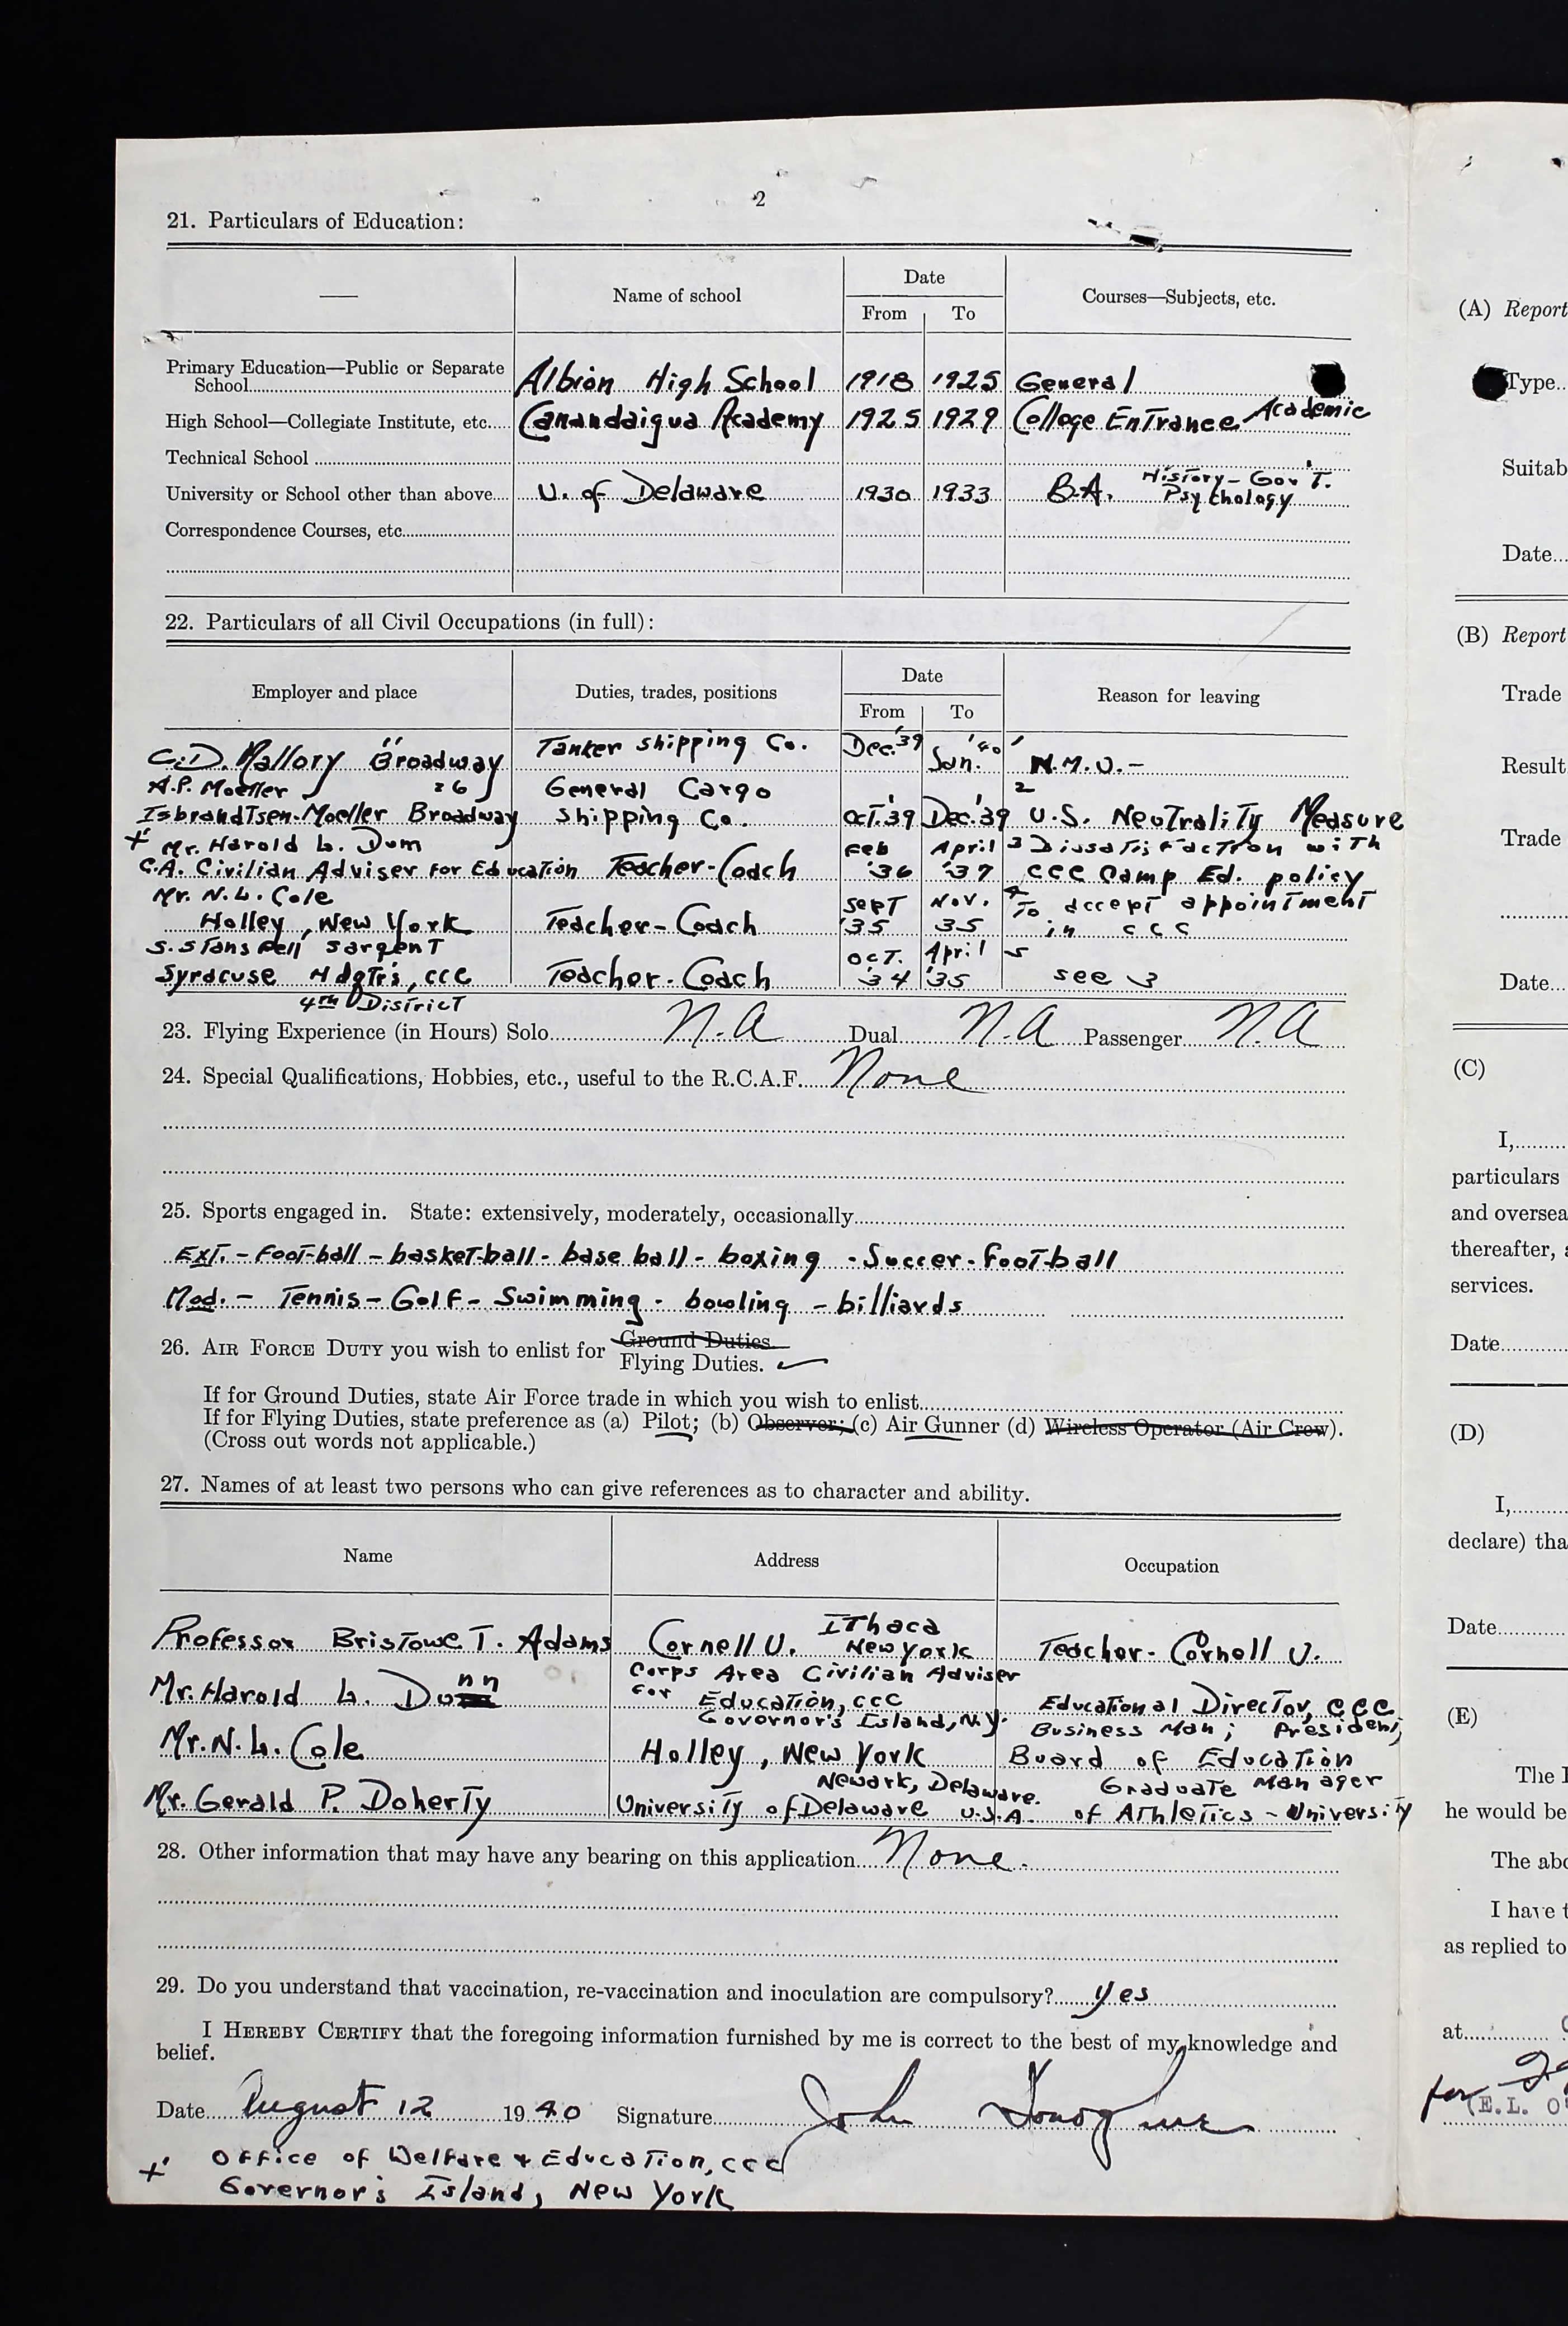 2
21. Particulars of Education:
— Name of school Date Courses—Subjects, etc.
From To
Primary Education—Public or Separate
School Albion High School 1918 1925 General
High School—Collegiate Institute, etc. Canandaigua Academy 1925 1929 College Entrance Academic
Technical School
University or School other than above U. of Delaware 1930 1933 B.A. History-Gov'T. Psychology
Correspondence Courses, etc.
22. Particulars of all Civil Occupations (in full):
Employer and place Duties, trades, positions Date Reason for leaving
From To
C.D. Mallory 11 Broadway Tanker Shipping Co. Dec. '39 Jan. '40 1 N.M.U.-
A.P. Moeller 26 General Cargo 2
Isbrandtsen-Moeller Broadway Shipping Co. Oct. '39 Dec. '39 U.S. Neutrality Measure
+ Mr. Harold L. Dum Feb April 3 Dissatisfaction with
C.A. Civilian Adviser for Education Teacher-Coach '36 '37 CCC Camp Ed. policy
Mr. N.L. Cole Sept Nov. 4 To accept appointment
Holley, New York Teacher-Coach '35 35 in CCC
S. Stansfell Sargent Oct. April 5
Syracuse Hdqtr's, CCC Teacher-Coach '34 '35 see 3
4th District
23. Flying Experience (in Hours) Solo N.A Dual N.A Passenger N.A
24. Special Qualifications, Hobbies, etc., useful to the R.C.A.F. None
25. Sports engaged in. State: extensively, moderately, occasionally
Ext. - Foot-ball - basket-ball - base ball - boxing - Soccer-football
Mod. - Tennis - Golf - Swimming - bowling - billiards
26. Air Force Duty you wish to enlist for Ground Duties.
Flying Duties. ✓
If for Ground Duties, state Air Force trade in which you wish to enlist
If for Flying Duties, state preference as (a) Pilot; (b) Observer; (c) Air Gunner (d) Wireless Operator (Air Crew).
(Cross out words not applicable.)
27. Names of at least two persons who can give references as to character and ability.
Name Address Occupation
Professor Bristowe T. Adams Cornell U. Ithaca New York Teacher-Cornell U.
Mr. Harold L. Dunn Corps Area Civilian Adviser for Education, CCC Governor's Island, N.Y. Educational Director, CCC
Mr. N.L. Cole Holley, New York Business Man; President, Board of Education
Mr. Gerald P. Doherty University of Delaware Newark, Delaware. U.S.A. Graduate Manager of Athletics - University
28. Other information that may have any bearing on this application None.
29. Do you understand that vaccination, re-vaccination and inoculation are compulsory? yes
I Hereby Certify that the foregoing information furnished by me is correct to the best of my knowledge and
belief.
Date August 12 1940 Signature John Donoghue
+ Office of Welfare & Education, CCC
Governor's Island, New York
(A) Report
Type
Suitab
Date
(B) Report
Trade
Result
Trade
Date
(C)
I,
particulars
and oversea
thereafter, a
services.
Date
(D)
I,
declare) tha
Date
(E)
The I
he would be
The abo
I have t
as replied to
at
for
E.L. O